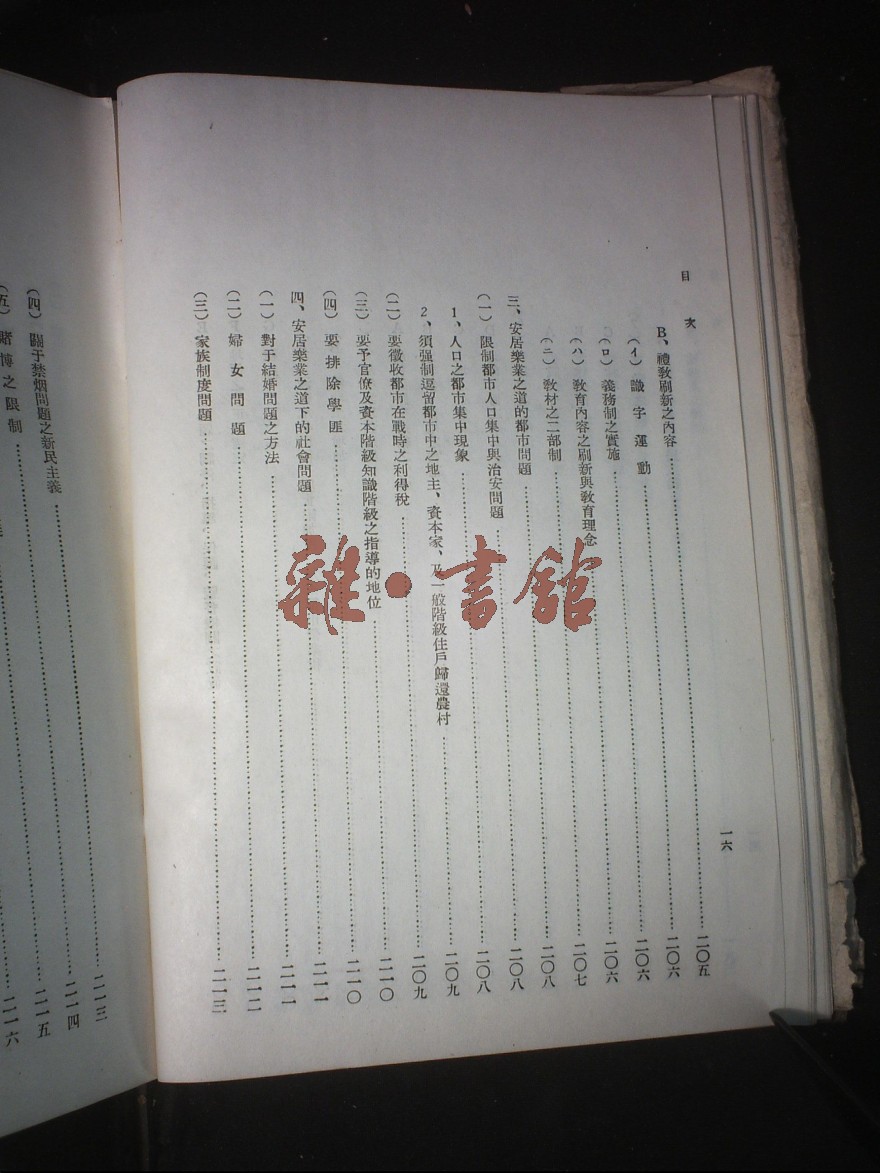 目次
B、禮敎刷新之內容……二〇五
(イ)識字運動……二〇六
(ロ)義務制之實施……二〇六
(ハ)敎育內容之刷新與敎育理念……二〇六
(ニ)敎材之二部制……二〇七
三、安居樂業之道的都市問題……二〇八
(一)限制都市人口集中與治安問題……二〇八
1、人口之都市集中現象……二〇八
2、須强制逗留都市中之地主、資本家、及一般階級住戶歸還農村……二〇九
(二)要徵收都市在戰時之利得稅……二〇九
(三)要予官僚及資本階級知識階級之指導的地位……二一〇
(四)要排除學匪……二一〇
四、安居樂業之道下的社會問題……二一一
(一)對于結婚問題之方法……二一一
(二)婦女問題……二一二
(三)家族制度問題……二一三
一六
(四)關于禁烟問題之新民主義……二一三
(五)賭博之限制……二一四
二一五
二一六
雜·書館